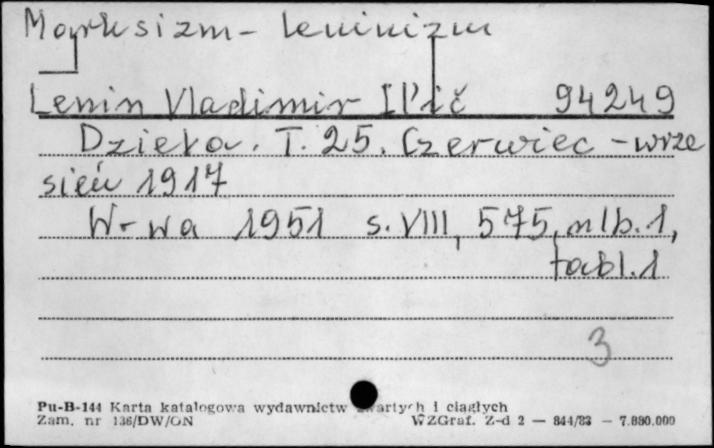 Marksizm - leninizm
Lenin Vladimir Il'ič 94249
Dzieła. T. 25. Czerwiec - wrze
sień 1917
W-wa 1951 s. VIII, 575, nlb. 1,
tabl. 1
3
Pu-B-144 Karta katalogowa wydawnictw zwartych i ciągłych
Zam. nr 136/DW/ON WZGraf. Z-d 2 — 844/83 — 7.880.000